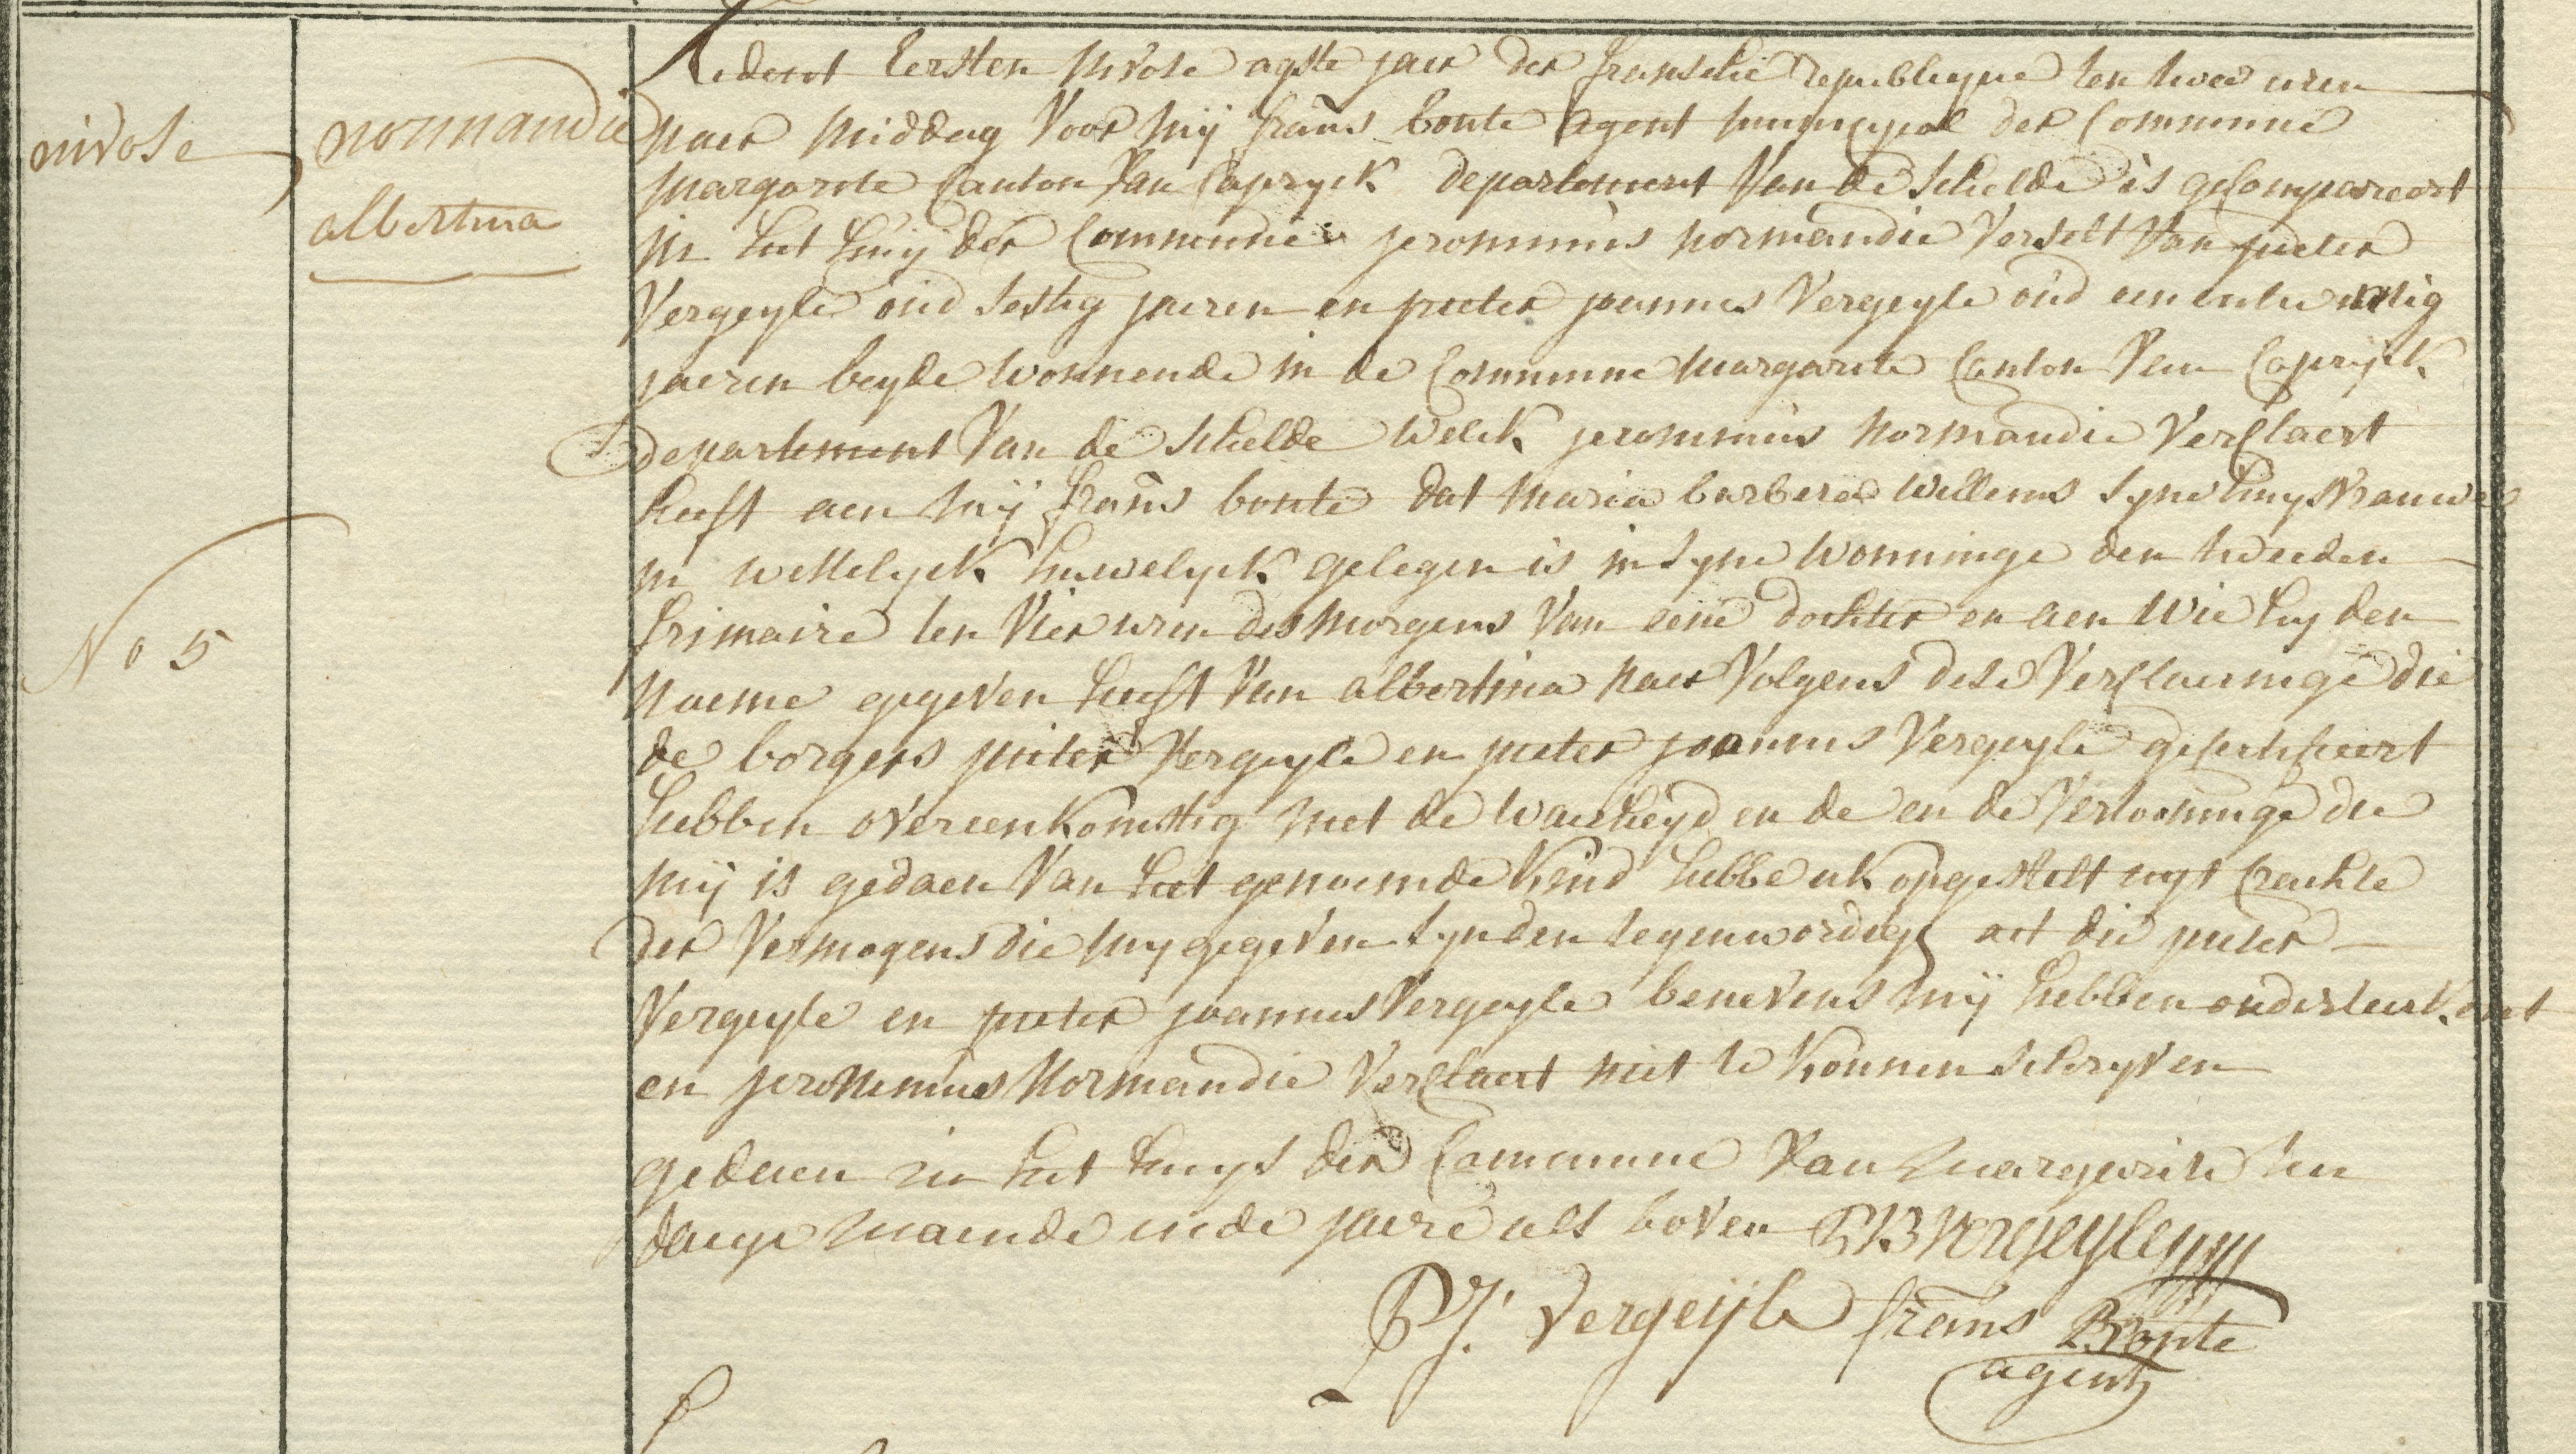 nivose
normandie
albertina
No 5
heden Eersten nivose agste jaer der fransche republique ten twee uren
naer middag voor mij frans bonte agent municipal der Commune
margarite Canton van Capryck departement van de schelde is gecompareert
in het huij der Commune jeronimus normandie verselt van pieter
vergeyle oud sestig jaeren en pieter joannes vergeyle oud een en
jaeren beyde wonnende in de Commune margarite Canton van Capryck
departement van de schelde welck jeronimus normandie verclaert
heeft aen mij frans bonte dat maria barbera willems syne huysvrauwe
in wettelyck huwelyck gelegen is in syne wonninge den tweeden
frimaire ten vier uren des morgens van eene dochter en aen wie hy den
naeme gegeven heeft van albertina naer volgens dese verclaeringe die
de borgers pieter vergeyle en pieter joannes vergeyle gesertifieert
hebben overeenkomstig met de waerheyd en de en de vertooninge die
mij is gedaen van het genoemde kind hebbe ik opgestelt uyt crachte
der vermogens die my gegeven syn den tegenwordige act die pieter
vergeyle en pieter joannes vergeyle benevens mij hebben onderteekent
en jeronimus normandie verclaert niet te konnen schryven
gedaen in het huys der Commune van margarite ten
daege maende ende jaere als boven PB vergeyle
PJ. vergeijle frans Bonte
agent